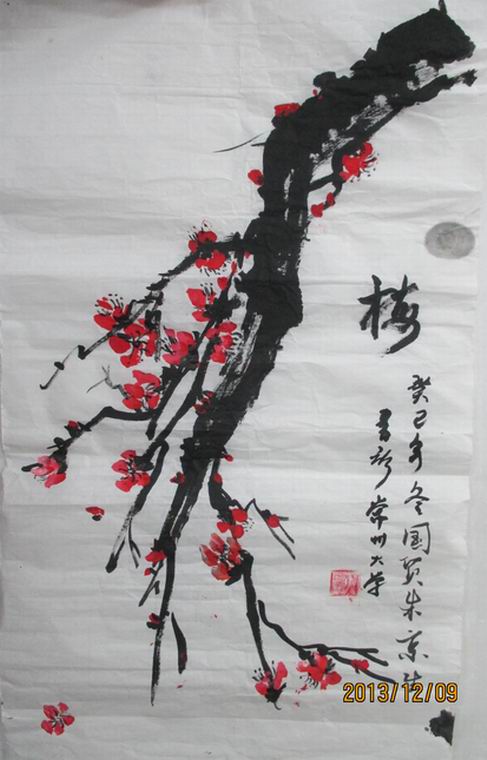 梅
癸巳年冬国贸朱京生
书于常州大学
2013/12/09